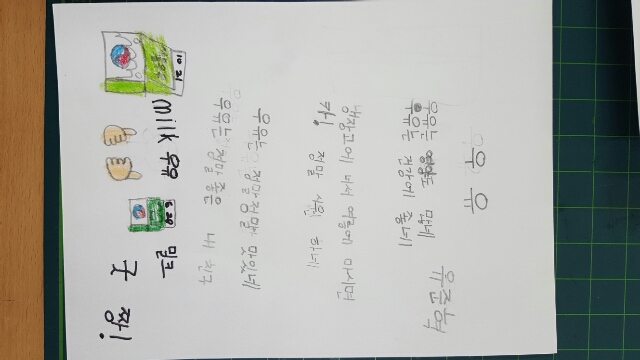 우유
우유는 영양도 많네
우유는 건강에 좋네
냉장고에 너서 여름에 마시면
캬! 정말 시원 하네
우유는 정말정말 맛있네
우유는 정말 좋은 내 친구
Milk 우유 밀크
10 21
6.20
짱!